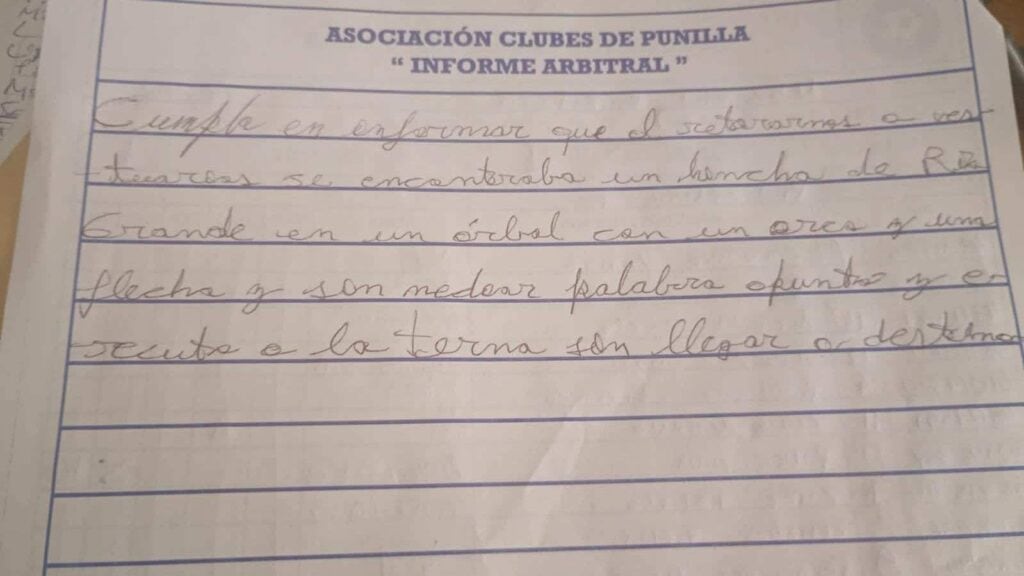 ASOCIACIÓN CLUBES DE PUNILLA
“ INFORME ARBITRAL ”
Cumplo en informar que al retirarnos a ves-
tuarios se encontraba un hincha de Río
Grande en un árbol con un arco y una
flecha y sin mediar palabra apunto y e-
jecuto a la terna sin llegar a destino